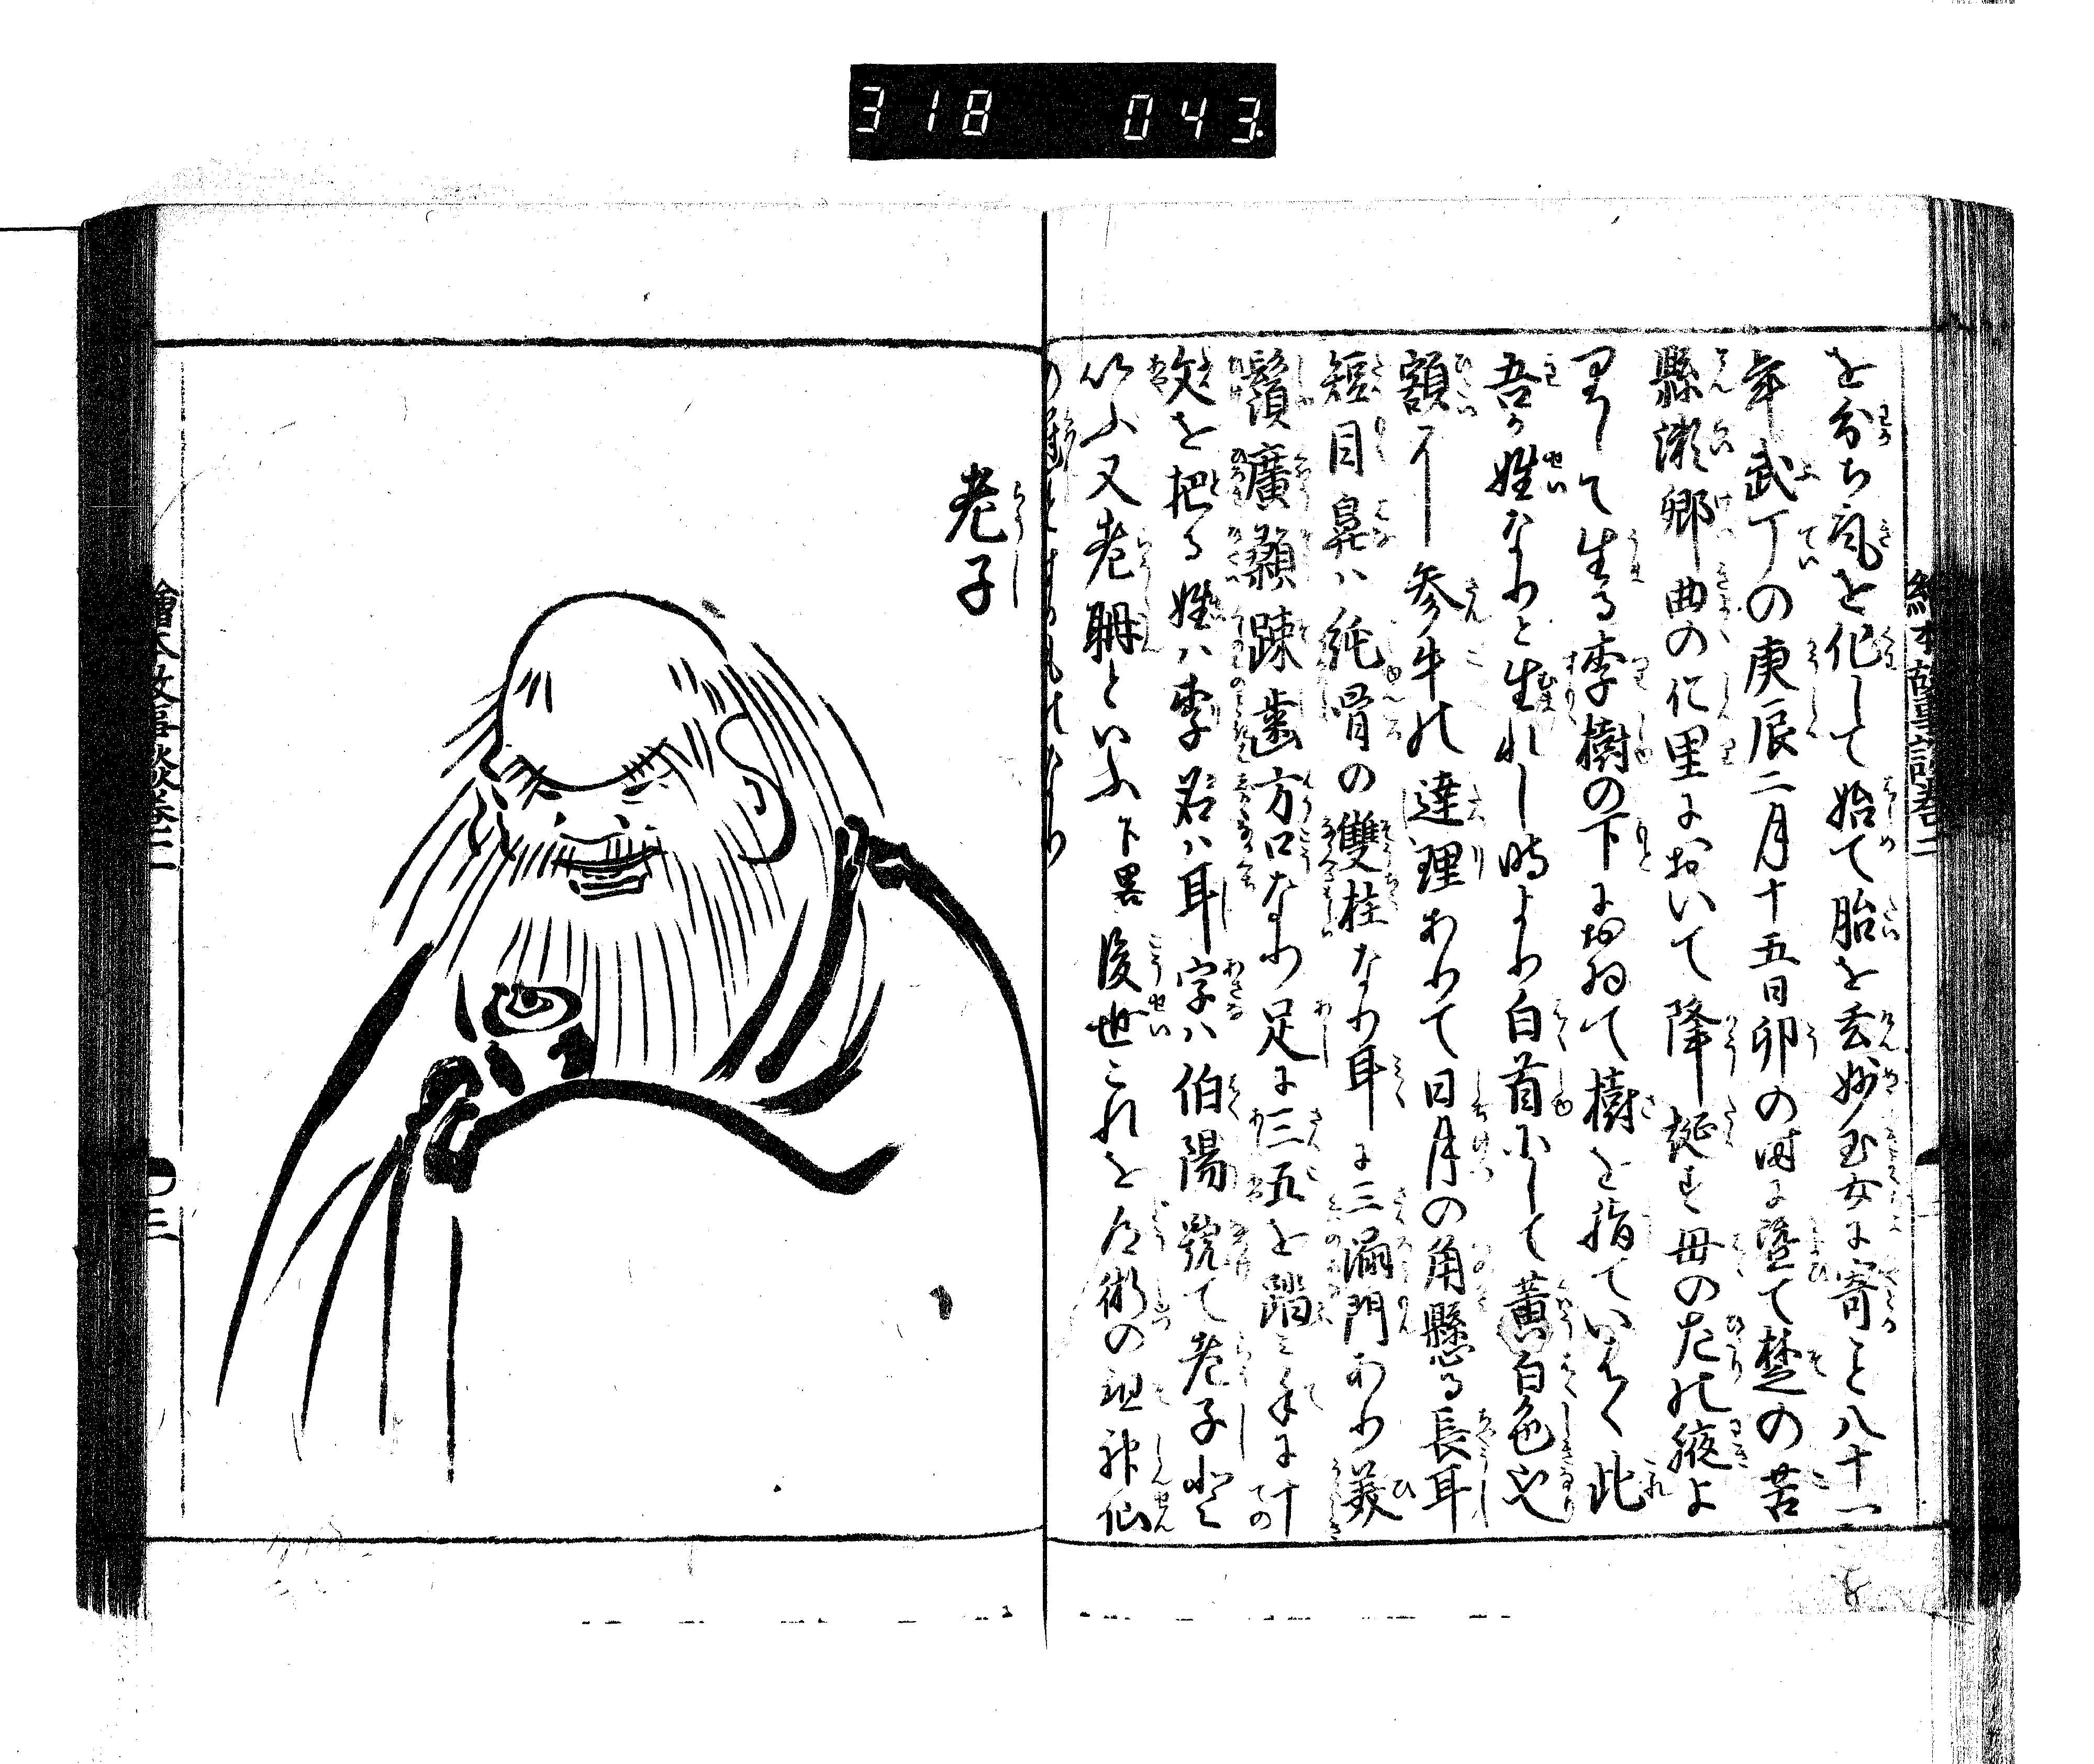 318 043.
を分ち気を化して始て胎を玄妙玉女に寄こと八十一
年武丁の庚辰二月十五日卯の時に曁て楚の苦
縣瀬郷曲の仁里において降誕す母のたの腋よ
りして生る李樹の下におゐて樹を指ていはく此
吾が姓なりと生れし時より白首にして黄白色也
額に参牛の達理ありて日月の角懸る長耳
短目鼻ハ純骨の雙柱なり耳に三漏門あり美
鬚廣顙踈歯方口なり足に三五を踏ミ手に十
文を把る姓ハ李名ハ耳字ハ伯陽號て老子と
いふ又老耼といふ下畧後世これを道術の祖神仙
老子
繪本故事談巻二
三